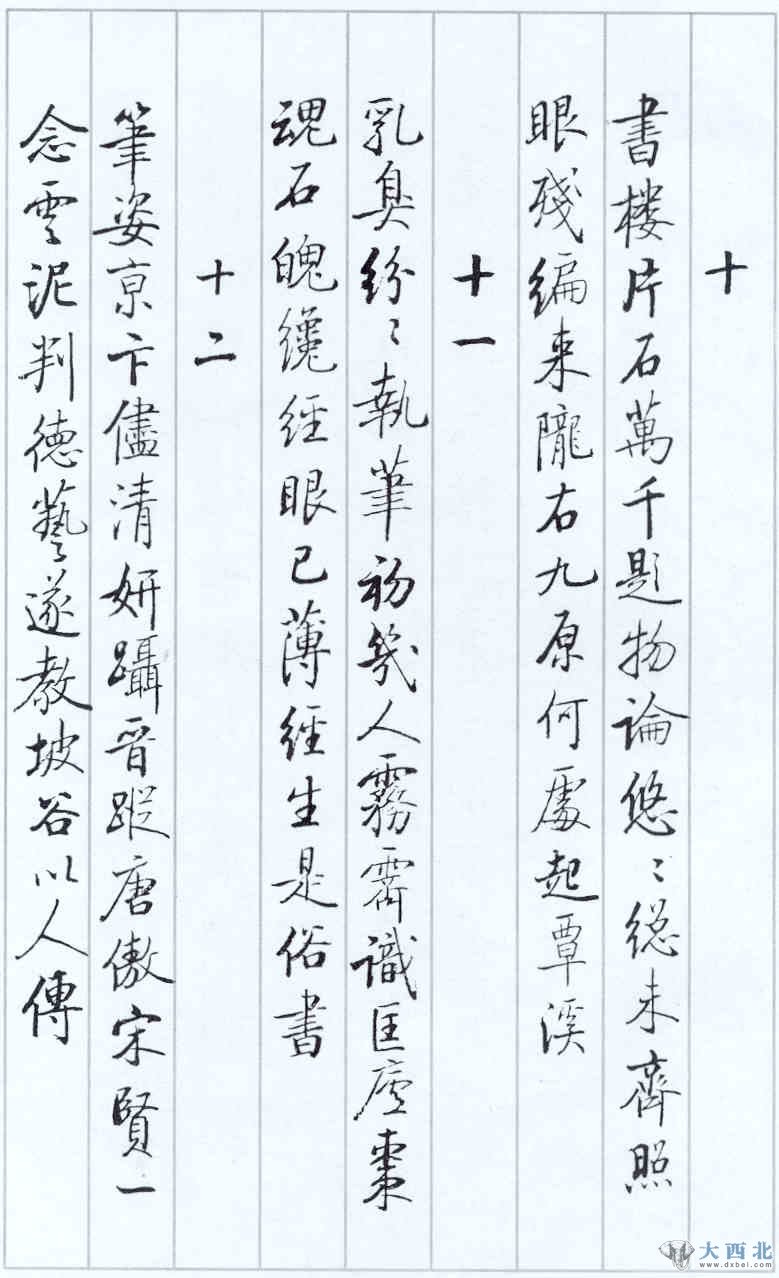 十
書楼片石萬千題物論悠〻總未齊照
眼殘編来隴右九原何處起覃溪
十一
乳臭紛〻執筆初幾人霧霽識匡廬棗
魂石魄纔經眼已薄經生是俗書
十二
筆姿京卞儘清妍躡晋踪唐傲宋賢一
念雲泥判德藝遂教坡谷以人傳
大西北
www.dxbei.com